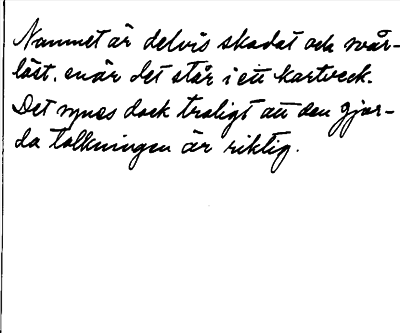 Namnet är delvis skadat och svår-
läst, enär det står i ett kartveck.
Det synes dock troligt att den gjor-
da tolkningen är riktig.